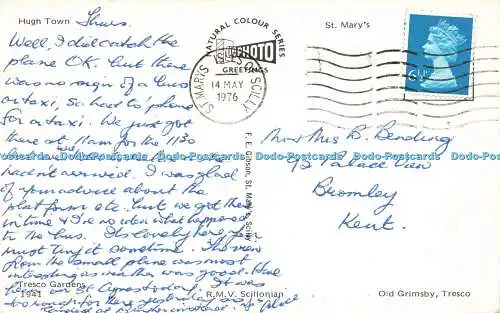 Hugh Town
Thurs.
Well, I did catch the
plane OK. but there
was no sign of a bus
or taxi, so had to 'phone
for a taxi. We just got
there at 11am for the 1130
hadn't arrived. I was glad
of your advice about the
platform etc. but we got there
in time & I've no idea what happened
to the bus. It's lovely here, you
must try it sometime. The view
from the small plane was most
interesting as weather was good. Have
been on St Agnes today. It was
too rough for there yesterday
St. Mary's
NATURAL COLOUR SERIES
PHOTO
GREETINGS
ST. MARYS ISLES OF SCILLY
14 MAY
1976
6½P
Mr & Mrs B. Bending
Palace View
Bromley
Kent.
F. E. Gibson, St. Mary's, Scilly
Dodo-Postcards Dodo-Postcards Dodo-Postcards Dodo-Postcards Dodo-Postcards
Tresco Gardens
1941
R.M.V. Scillonian
Old Grimsby, Tresco